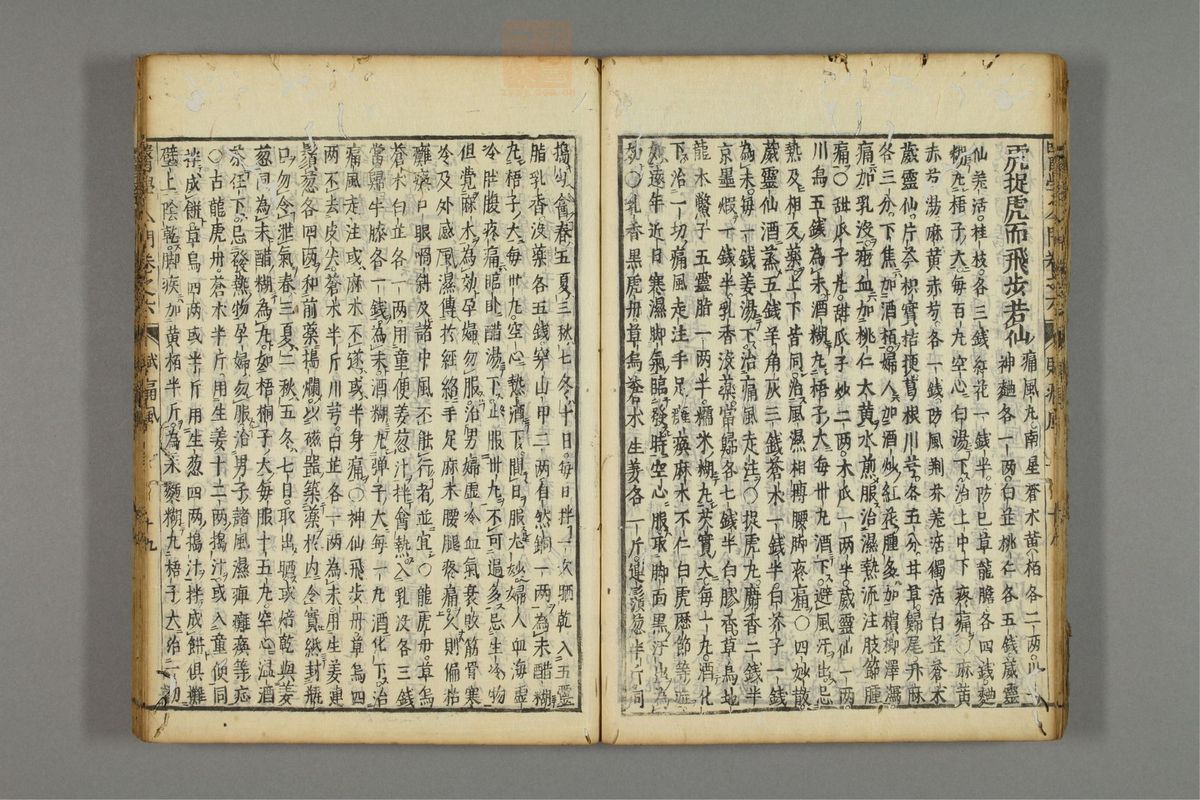 虎捉虎而飛步若仙 痛風丸南星蒼朮黃柏各二兩川
芎神麯各一兩白芷桃仁各五錢威靈
仙羌活桂枝各三錢紅花一錢半防已草龍膽各四錢麯
糊丸梧子大每百丸空心白湯下治上中下疼痛〇麻黃
赤芍湯麻黃赤芍各一錢防風荊芥羌活獨活白芷蒼朮
威靈仙片芩枳實桔梗葛根川芎各五分甘草歸尾升麻
各三分下焦加酒栢婦人加酒炒紅花腫多加檳榔澤瀉
痛加乳沒瘀血加桃仁大黃水煎服治濕熱流注肢節腫
痛〇甜瓜子丸甜瓜子炒二兩木瓜一兩半威靈仙一兩
川烏五錢為末酒糊丸梧子大每卅丸酒下避風汗出忌
熱及相反藥上下昔同治風濕相搏腰脚疼痛〇四妙散
威靈仙酒蒸五錢羊角灰三錢蒼朮一錢半白芥子一錢
為末每一錢姜湯下治痛風走注〇捉虎丸麝香二錢半
京墨煅一錢半乳香沒藥當歸各七錢半白膠香草烏地
龍木鱉子五靈脂一兩半糯米糊丸芡實大每一丸酒化
下治一切痛風走注手足癱瘓麻木不仁白虎歷節等症
遠年近日寒濕脚氣臨發時空心服取脚面黑汗出為
〇乳香黑虎丹草烏蒼朮生姜各一斤連鬚葱半斤同
搗爛夏三秋七冬十日每日拌一次晒乾入五靈
脂乳香沒藥各五錢穿山甲二兩自然銅一兩為末醋糊
丸梧子大每卅丸空心熱酒下間日服尤妙婦人血海虛
冷肚腹疼痛臨卧醋湯下止服卅丸不可過多忌生冷物
但覺麻木為效孕婦勿服治男婦虛冷血氣衰敗筋骨寒
冷及外感風濕傳於經絡手足麻木腰腿疼痛久則偏枯
癱瘓口眼喎斜及諸中風不能行者並宜〇龍虎丹草烏
蒼朮白芷各一兩用童便姜葱汁拌罯熱入乳沒各三錢
當歸牛膝各一錢為末酒糊丸彈子大每一丸酒化下治
痛風走注或麻木不遂或半身痛〇神仙飛步丹草烏四
兩不去皮尖蒼朮半斤川芎白芷各一兩為末用生姜連
鬚葱各四兩和前藥搗爛以磁器築藥於內令實紙封瓶
口勿令泄氣春三夏二秋五冬七日取出晒或焙乾與姜
葱同為末醋糊為丸如梧桐子大每服十五丸空心溫酒
茶任下忌發熱物孕婦勿服治男子諸風濕痺癱瘓等症
〇古龍虎丹蒼朮半斤用生姜十二兩搗汁或入童便同
拌成餅草烏四兩或半斤用生葱四兩搗汁拌成餅俱攤
壁上陰乾脚疾加黃栢半斤為末麵糊丸梧子大治一切